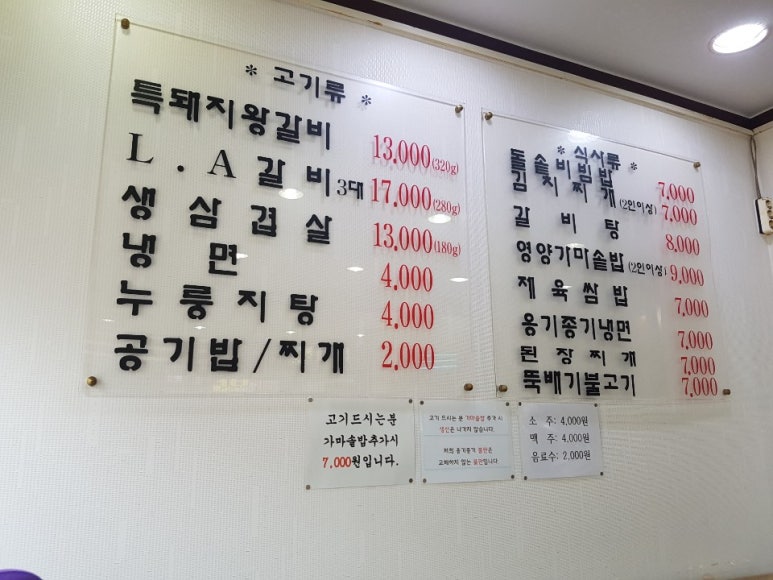 * 고기류 *
특돼지왕갈비 13,000(320g)
L.A갈비3대 17,000(280g)
생삼겹살 13,000(180g)
냉면 4,000
누룽지탕 4,000
공기밥/찌개 2,000
* 식사류 *
돌솥비빔밥 7,000
김치찌개(2인이상) 7,000
갈비탕 8,000
영양가마솥밥(2인이상) 9,000
제육쌈밥 7,000
옹기종기냉면 7,000
된장찌개 7,000
뚝배기불고기 7,000
고기드시는분
가마솥밥추가시
7,000원입니다.
고기 드시는 분 가마솥밥 추가 시
생선은 나가지 않습니다.
저희 옹기종기 불판은
교체하지 않는 불판입니다
소 주: 4,000원
맥 주: 4,000원
음료수: 2,000원